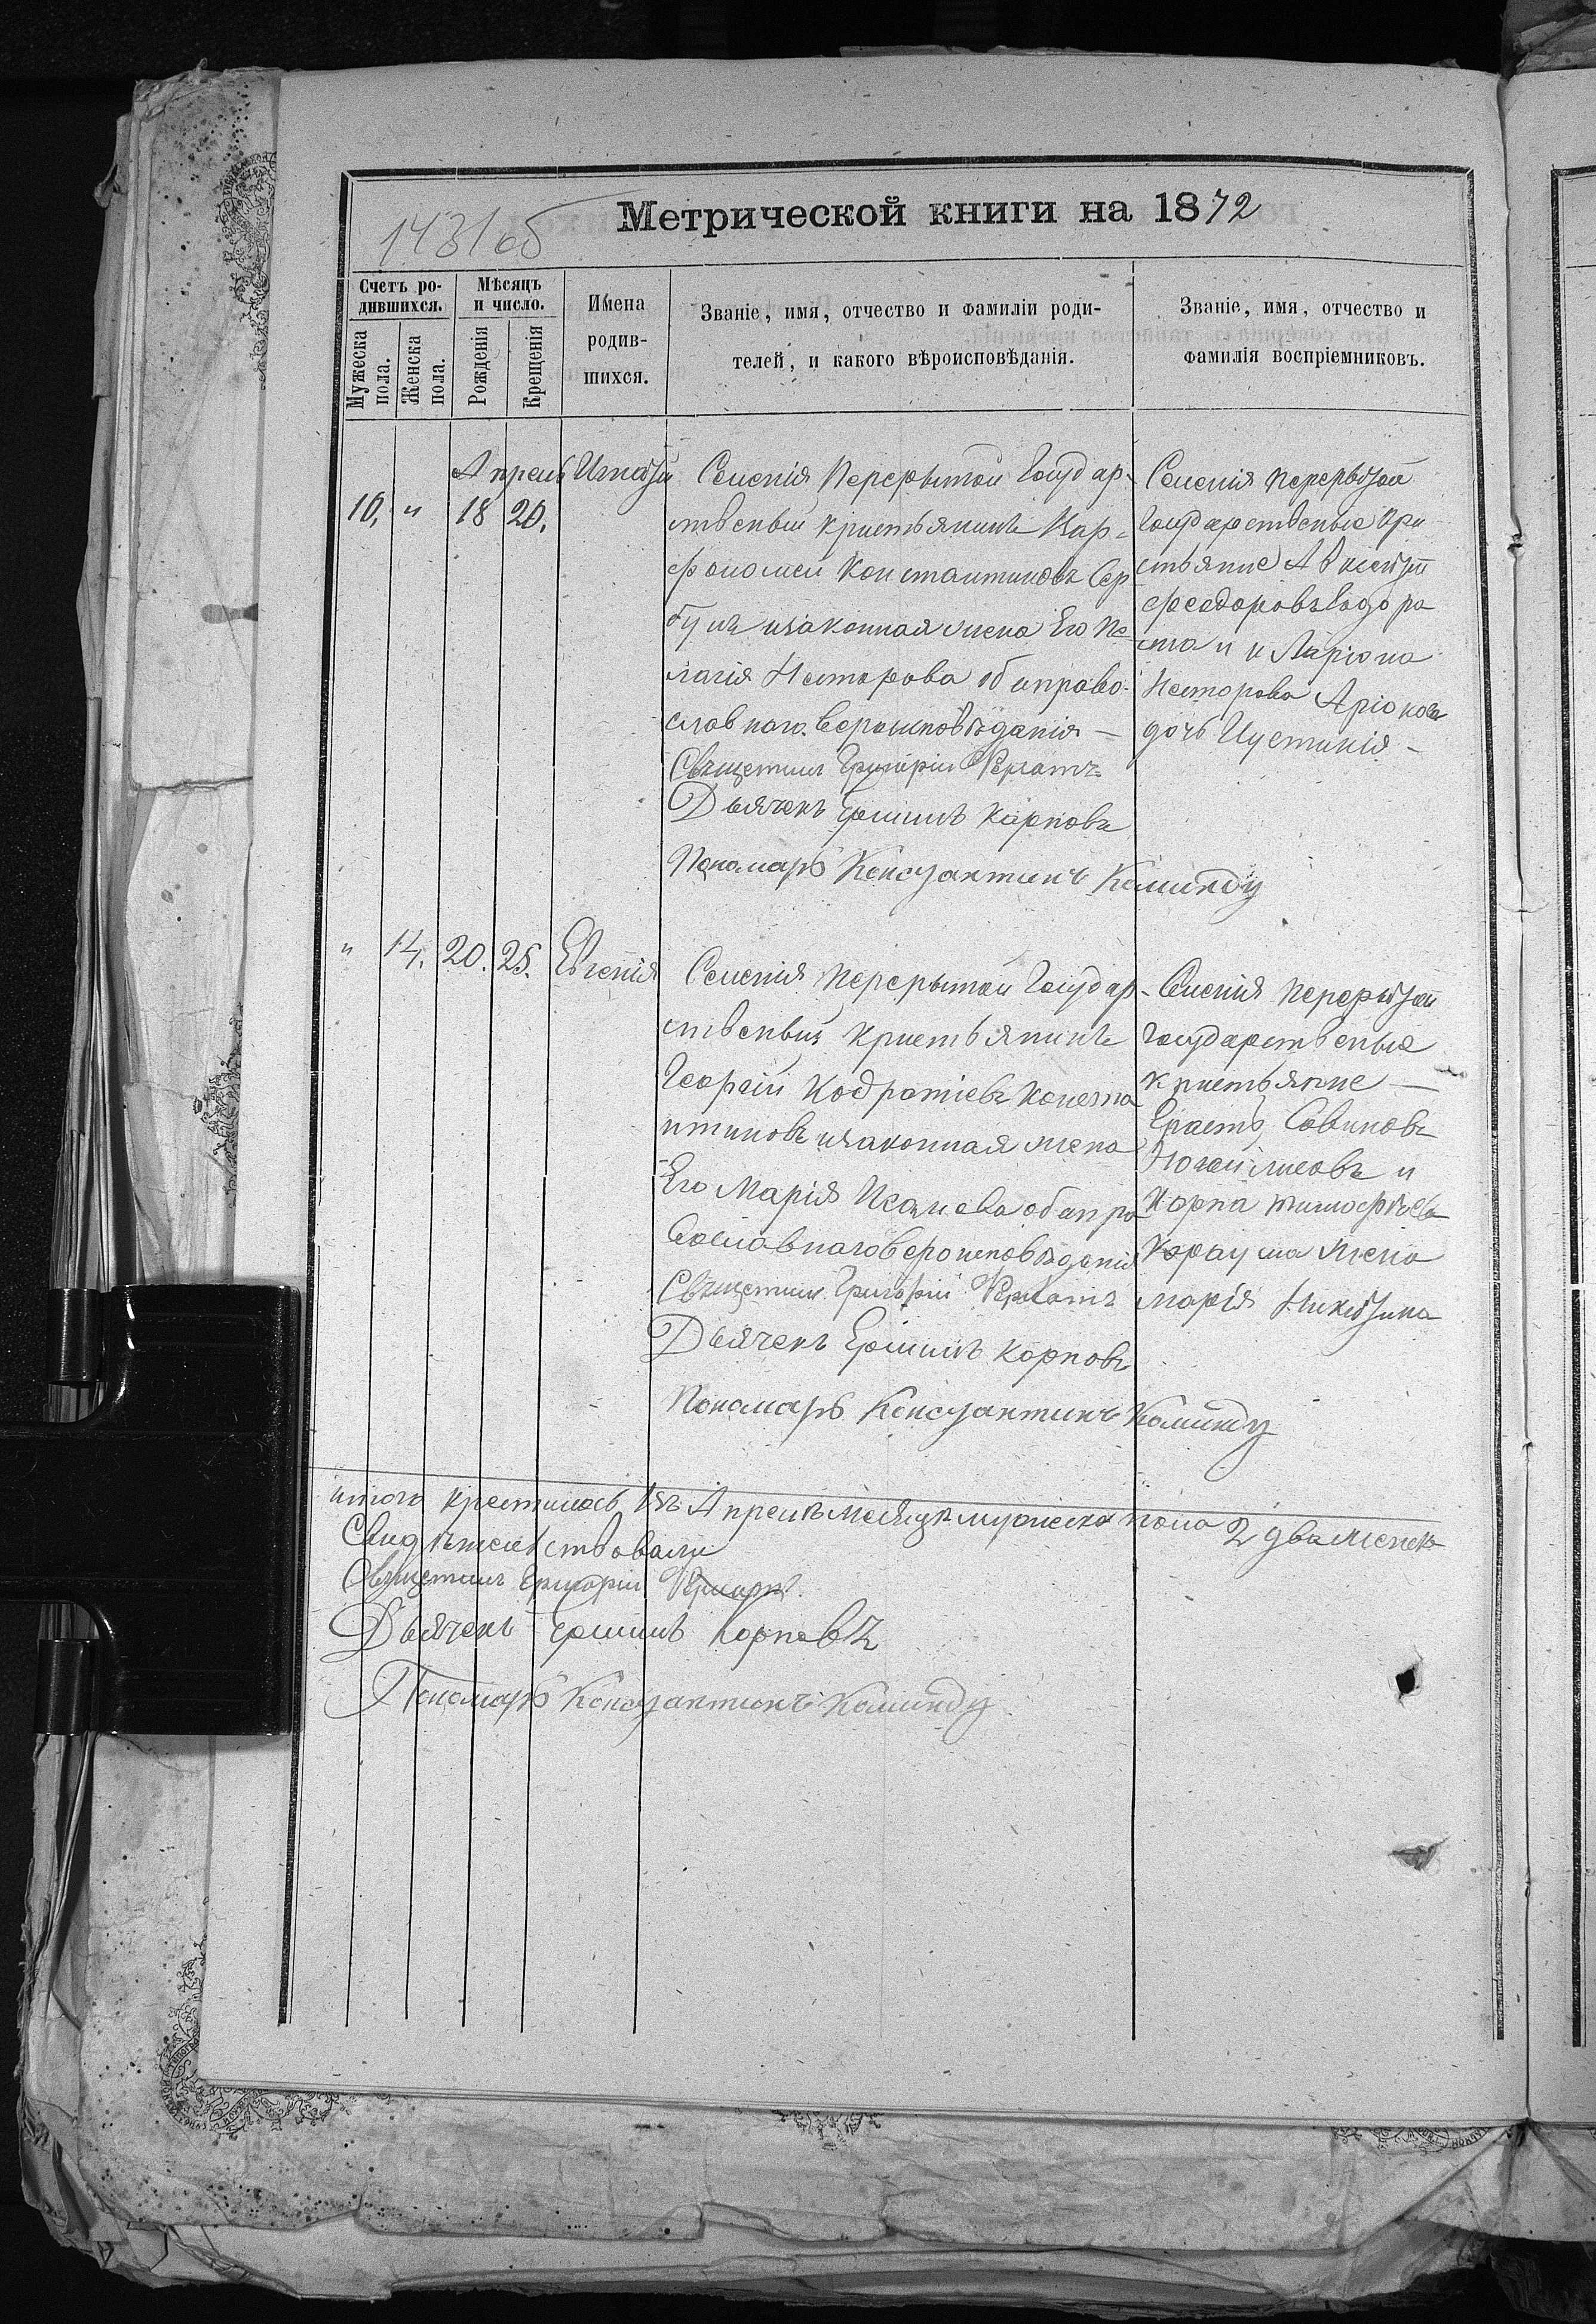 Метрической книги на 1872
1431 об
Счетъ ро-
дившихся.
Мужеска пола.
Женска пола.
Мѣсяцъ
и число.
Рожденія
Крещенія
Имена
родив-
шихся.
Званіе, имя, отчество и фамиліи роди-
телей, и какого вѣроисповѣданія.
Званіе, имя, отчество и
фамилія воспріемниковъ.
Апрель
10. " 18 20.
Селенія Перерытой Государ-
ственый кристьянинъ Вар-
фоломей Константиновъ Сер
булъ изаконная жена Его Пе-
лагія Несторова оба право-
славнаго вероисповѣданія —
Священникъ Григорій
Дьячекъ Ермилъ Карповъ
Пономарь Константинъ
Селенія Перерытой
Государственые кри
стьяне
Феодоровъ
и Ларіона
Несторова
дочь Иустинія —
" 14. 20. 25. Евгенія
Селенія Перерытой Государ-
ственый кристьянинъ
Георгій Кодратіевъ Конста
нтиновъ изаконная жена
Его Марія Исачева оба пра
вославнаго вероисповѣданія
Священникъ Григорій
Дьячекъ Ермилъ Карповъ
Пономарь Константинъ
Селенія Перерытой
Государственые
кристьяне —
Савиновъ
и
Тимофѣева
жена
Марія Никитина
итого крестилось въ Апреле месяце мужеска пола 2 два женска
Свидѣтельствовали
Священникъ Григорій
Дьячекъ Ермилъ Карповъ
Пономарь Константинъ